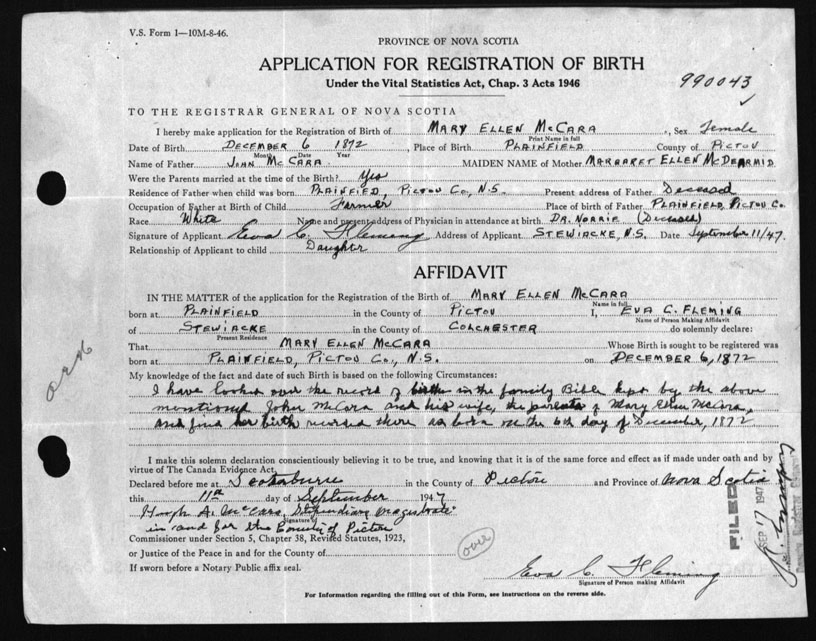 V.S. Form 1—10M-8-46.
PROVINCE OF NOVA SCOTIA
APPLICATION FOR REGISTRATION OF BIRTH
Under the Vital Statistics Act, Chap. 3 Acts 1946
990043
TO THE REGISTRAR GENERAL OF NOVA SCOTIA
I hereby make application for the Registration of Birth of MARY ELLEN McCARA, Sex female
Print Name in full
Date of Birth DECEMBER 6 1872, Place of Birth PLAINFIELD County of PICTOU
Month Date Year
Name of Father JOHN McCARA MAIDEN NAME of Mother MARGARET ELLEN McDEARMID
Were the Parents married at the time of the Birth? Yes
Residence of Father when child was born PLAINFIED, PICTOU Co., N.S. Present address of Father Deceased
Occupation of Father at Birth of Child Farmer Place of birth of Father PLAINFIELD, PICTOU Co.
Race White Name and present address of Physician in attendance at birth DR. NORRIE (Deceased)
Signature of Applicant Eva C. Fleming Address of Applicant STEWIACKE, N.S. Date September 11/47.
Relationship of Applicant to child Daughter
AFFIDAVIT
IN THE MATTER of the application for the Registration of the Birth of MARY ELLEN McCARA
Name in full
born at PLAINFIELD in the County of PICTOU I, EVA C. FLEMING
Name of Person Making Affidavit
of STEWIACKE in the County of COLCHESTER do solemnly declare:
Present Residence
That MARY ELLEN McCARA Whose Birth is sought to be registered was
born at PLAINFIELD, PICTOU Co., N.S. on DECEMBER 6, 1872
My knowledge of the fact and date of such Birth is based on the following Circumstances:
I have looked over the record of births in the family Bible kept by the above
mentioned John McCara and his wife, the parents of Mary Ellen McCara,
and find her birth recorded there as born on the 6th day of December, 1872
I make this solemn declaration conscientiously believing it to be true, and knowing that it is of the same force and effect as if made under oath and by
virtue of The Canada Evidence Act.
Declared before me at Scotsburn in the County of Pictou and Province of Nova Scotia
this 11th day of September 1947
Hugh A. McCara, Stipendiary Magistrate
in and for the County of Pictou
Signature of
Commissioner under Section 5, Chapter 38, Revised Statutes, 1923,
or Justice of the Peace in and for the County of
over
If sworn before a Notary Public affix seal.
Eva C. Fleming
Signature of Person making Affidavit
For Information regarding the filling out of this Form, see instructions on the reverse side.
FILED
SEP 17 1947